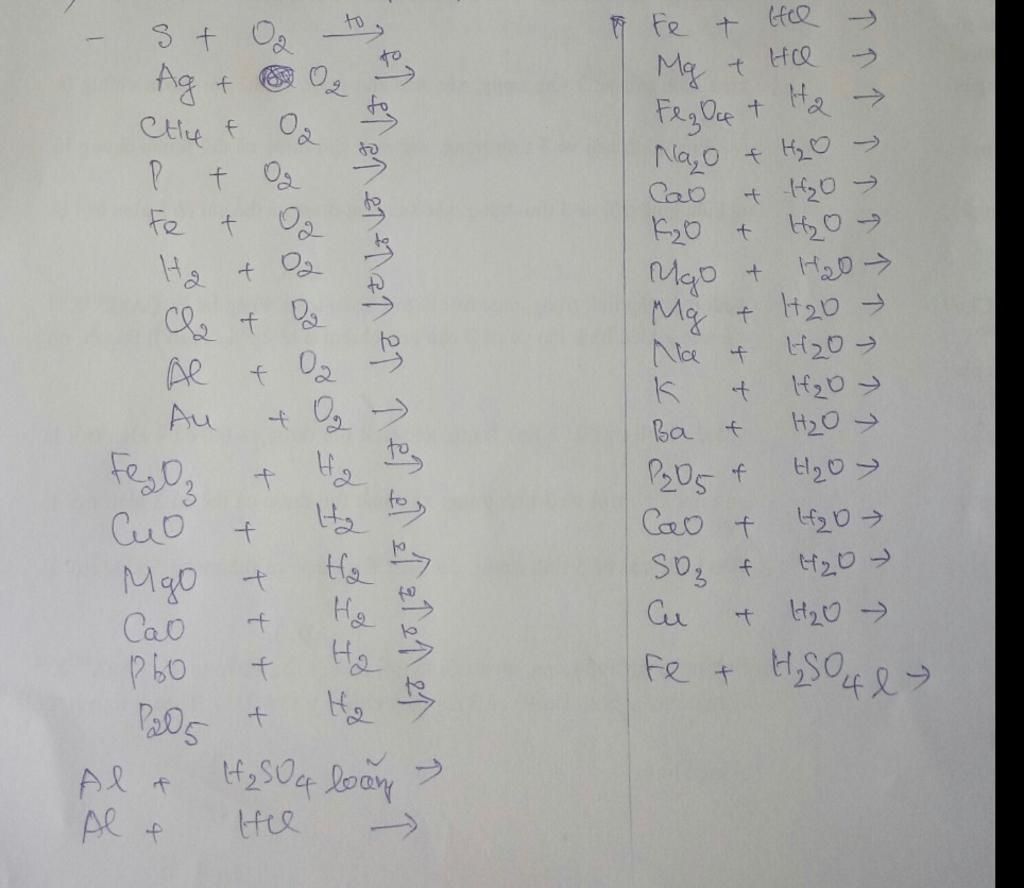 - S + O2 t° →
Ag + O2 t° →
CH4 + O2 t° →
P + O2 t° →
Fe + O2 t° →
H2 + O2 t° →
Cl2 + O2 t° →
Al + O2 t° →
Au + O2 →
Fe2O3 + H2 t° →
CuO + H2 t° →
MgO + H2 t° →
CaO + H2 t° →
PbO + H2 t° →
P2O5 + H2 t° →
Al + H2SO4 loãng →
Al + HCl →
Fe + HCl →
Mg + HCl →
Fe3O4 + H2 →
Na2O + H2O →
CaO + H2O →
K2O + H2O →
MgO + H2O →
Mg + H2O →
Na + H2O →
K + H2O →
Ba + H2O →
P2O5 + H2O →
CaO + H2O →
SO3 + H2O →
Cu + H2O →
Fe + H2SO4 l →